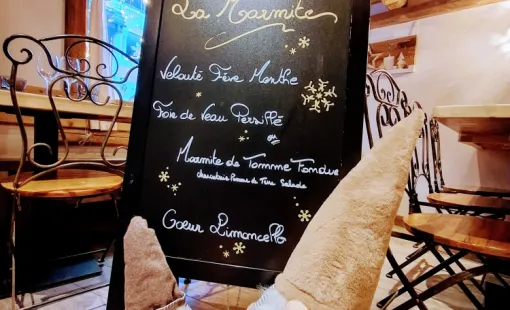 La Marmite
Velouté Fève Menthe
Foie de Veau Persillé
ou
Marmite de Tomme Fondue
charcuterie Pomme de Terre Salade
Coeur Limoncello